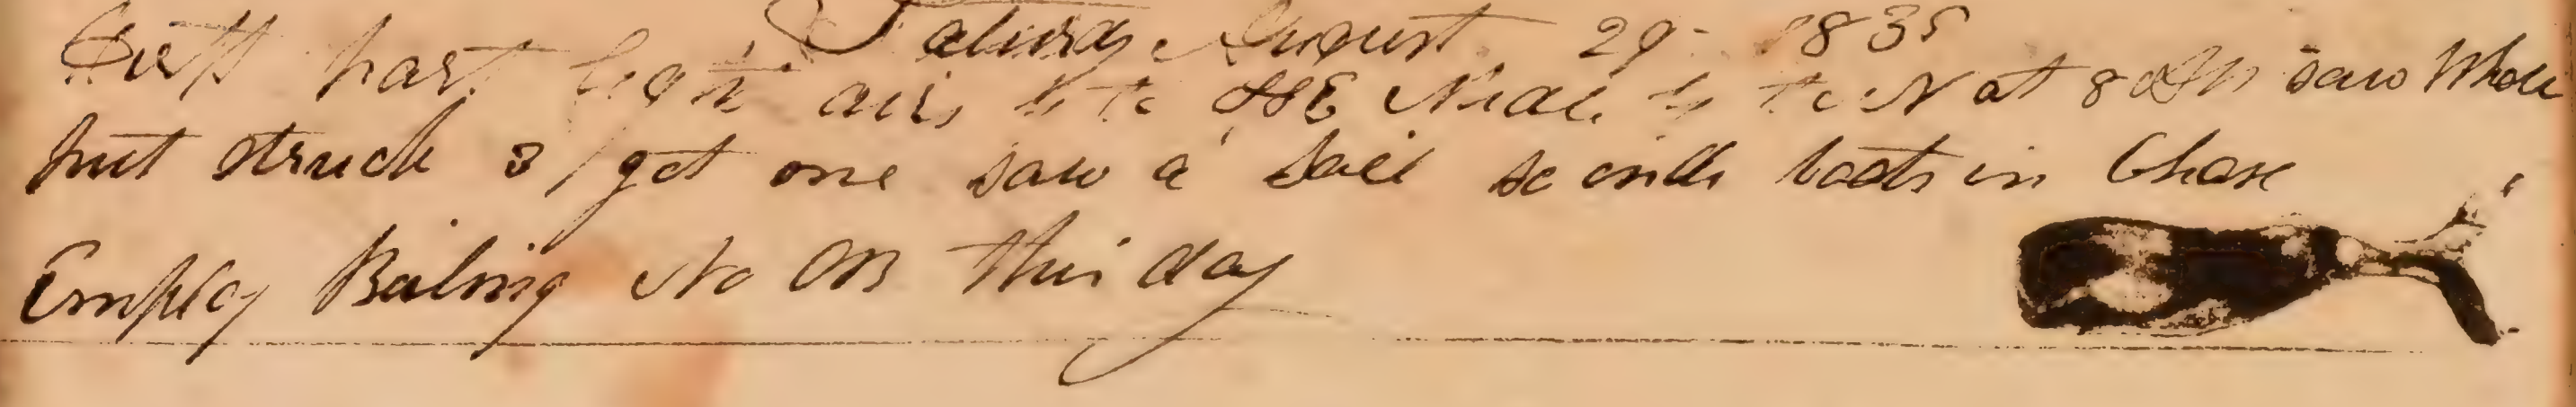 Saturday August 29 1835
First part light airs to the SSE Head to the N at 8 AM saw Whale
but struck 3 got one saw a Sail boats in Chase
Employ Boiling No OB this day